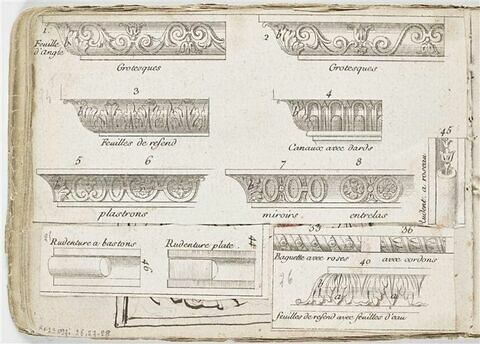 1. 2
Feuille d'Angle
Grotesques Grotesques
3 4
Feuilles de refend Canaux avec dards
5 6 7 8
plastrons miroirs entrelas
45
Rudent. a roseau
Rudenture a bastons Rudenture plate.
46 44
35 36
Baguette avec roses avec cordons
40
feuilles de refend avec feuilles d'eau